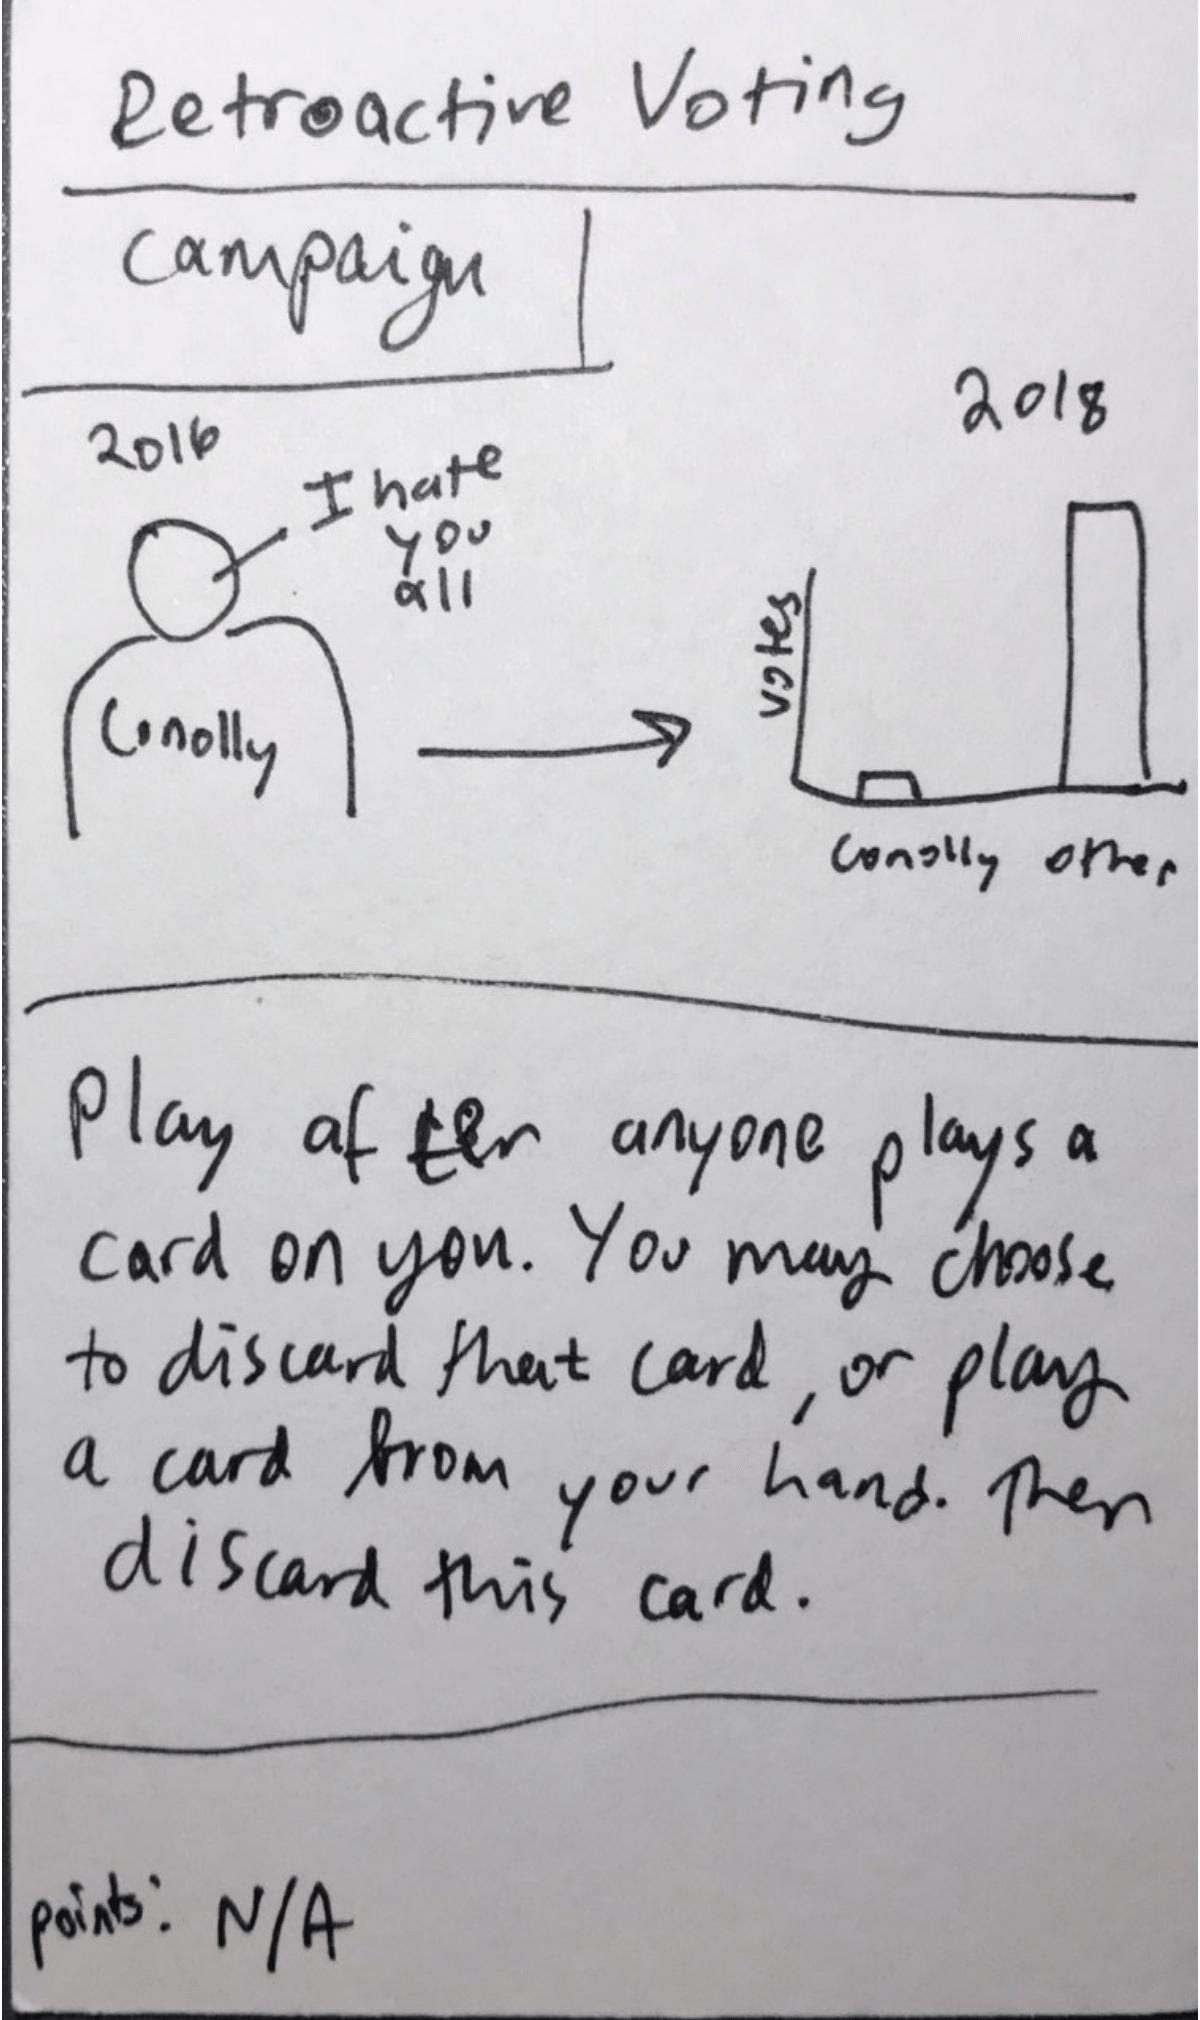 Retroactive Voting
Campaign
2016
I hate
you
all
Conolly
2018
votes
Conolly other
Play after anyone plays a
card on you. You may choose
to discard that card, or play
a card from your hand. Then
discard this card.
points: N/A